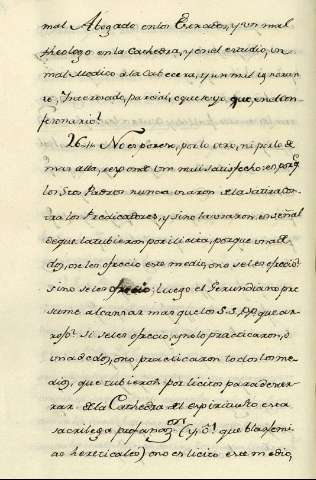 mal Abogado en los Estrados, y un mal
theologo en la Cathedra, y en el estudio, un
mal Medico à la Cabecera, y un mil ignoran
te, Interesado, parcial, eque se yo que, en el con
fesionario?
26.. No es por eso, por lo otro, ni por lo de
mas alla, responde tom mui satisfecho: es porq̃
los Stos Padres nunca usaron de la satira con
tra los Predicadores, y sino la usaron es señal
de que la tubieron por ilicita, porque una de
dos, o se les ofrecio este medio, o no se les ofrecio?
sino se les ofrecio; luego el Gerundiano pre
sume alcanzar mas que los S.S. P.P. que ar
rojo! si se les ofrecio, y no lo practicaron, ò
una de dos, o no practicaron todos los me
dios, que tubieron por licitos para dester
rar de la Cathedra del espiritu sto esta
sacrilega profanazon (y ô! que blasfemi
ao hereticales) o no es licito este medio,